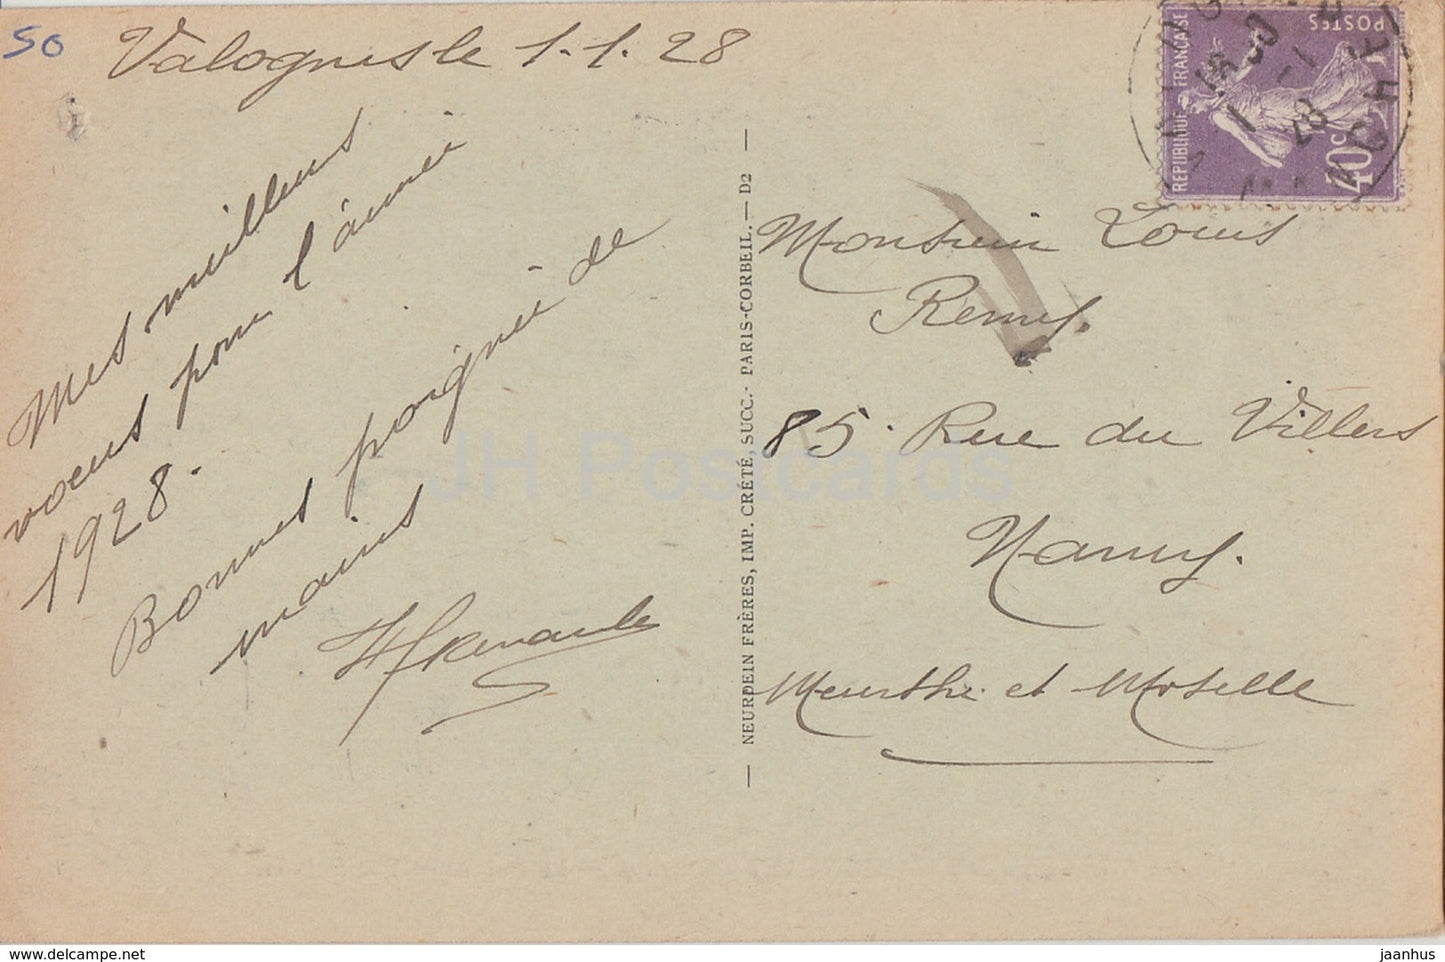 50
Valognes le 1.1.28
Mes meilleurs
voeux pour l'année
1928.
Bonnes poignée de
mains
Monsieur Louis
Remy.
85. Rue du Villers
Nancy.
Meurthe et Moselle
NEURDEIN FRÈRES, IMP. CRÉTÉ, SUCC.- PARIS-CORBEIL. — D2 —
REPUBLIQUE FRANÇAISE
POSTES
40c
MANCHE
JH Postcards
delcampe.net
jaanhus